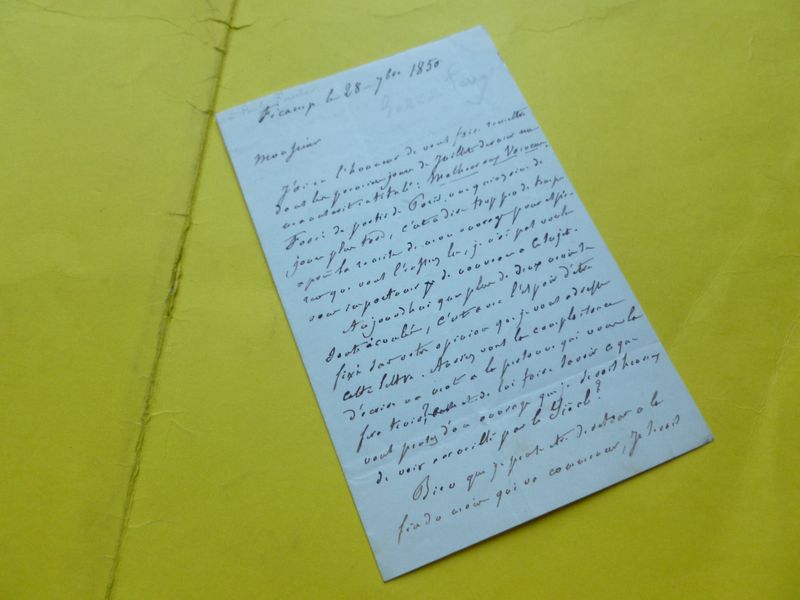 Fécamp le 28 7bre 1850
Monsieur
J'ai eu l'honneur de vous faire remettre
dans les premiers jours de Juillet dernier un
manuscrit intitulé: Malheur aux Vaincus.
Forcé de partir de Paris une quinzaine de
jours plus tard, c'est à dire trop peu de temps
après la remise de mon ouvrage pour espérer
que vous l'eussiez lu, je n'ai pas voulu
vous importuner de nouveau à ce sujet.
Aujourd'hui que plus de deux mois se
sont écoulés, c'est avec l'espoir d'être
fixé sur votre opinion que je vous adresse
cette lettre. Aurez vous la complaisance
d'écrire un mot à la personne qui vous la
fera tenir, et de lui faire savoir ce que
vous pensez d'un ouvrage que je serais heureux
de voir accueilli par le Siècle?
Bien que je compte de retour à la
fin du mois qui va commencer, je serais